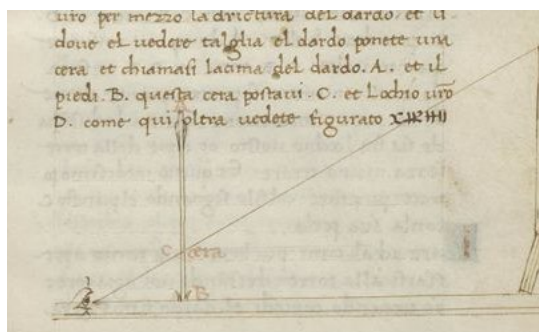 uro per mezzo la drictura del dardo. et li
dove el vedere talglia el dardo ponete una
cera et chiamasi la cima del dardo. A. et il
piedi. B. questa cera postavi. C. et Lochio uro
D. come qui oltra vedete figurato
C cera
B